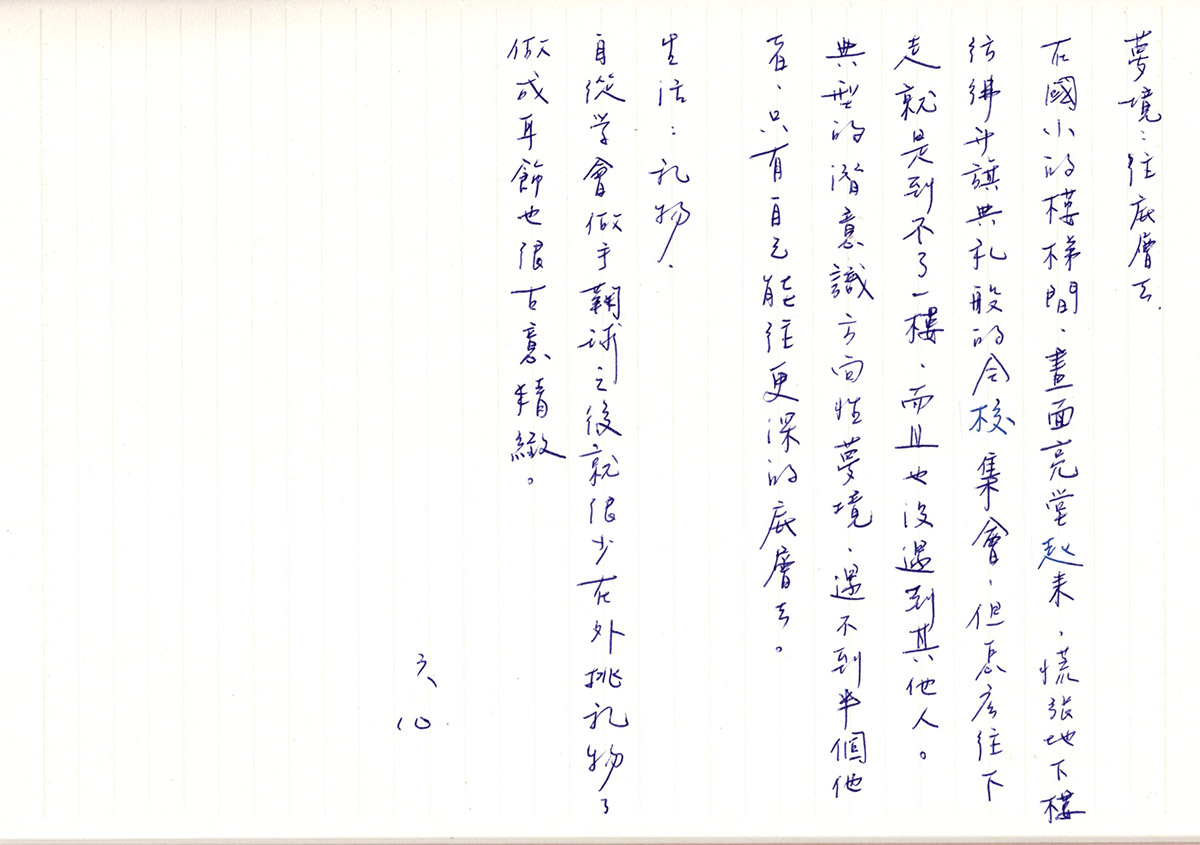 夢境：往底層去.
在國小的樓梯間、畫面亮堂起來，慌張地下樓
彷彿升旗典礼般的全校集會，但怎麼往下
走就是到不了一樓、而且也沒遇到其他人。
典型的潛意識方向性夢境、遇不到半個他
者、只有自己能往更深的底層去。
生活：礼物.
自從学會做手鞠球之後就很少在外挑礼物了
做成耳飾也很古意精緻。
六
10